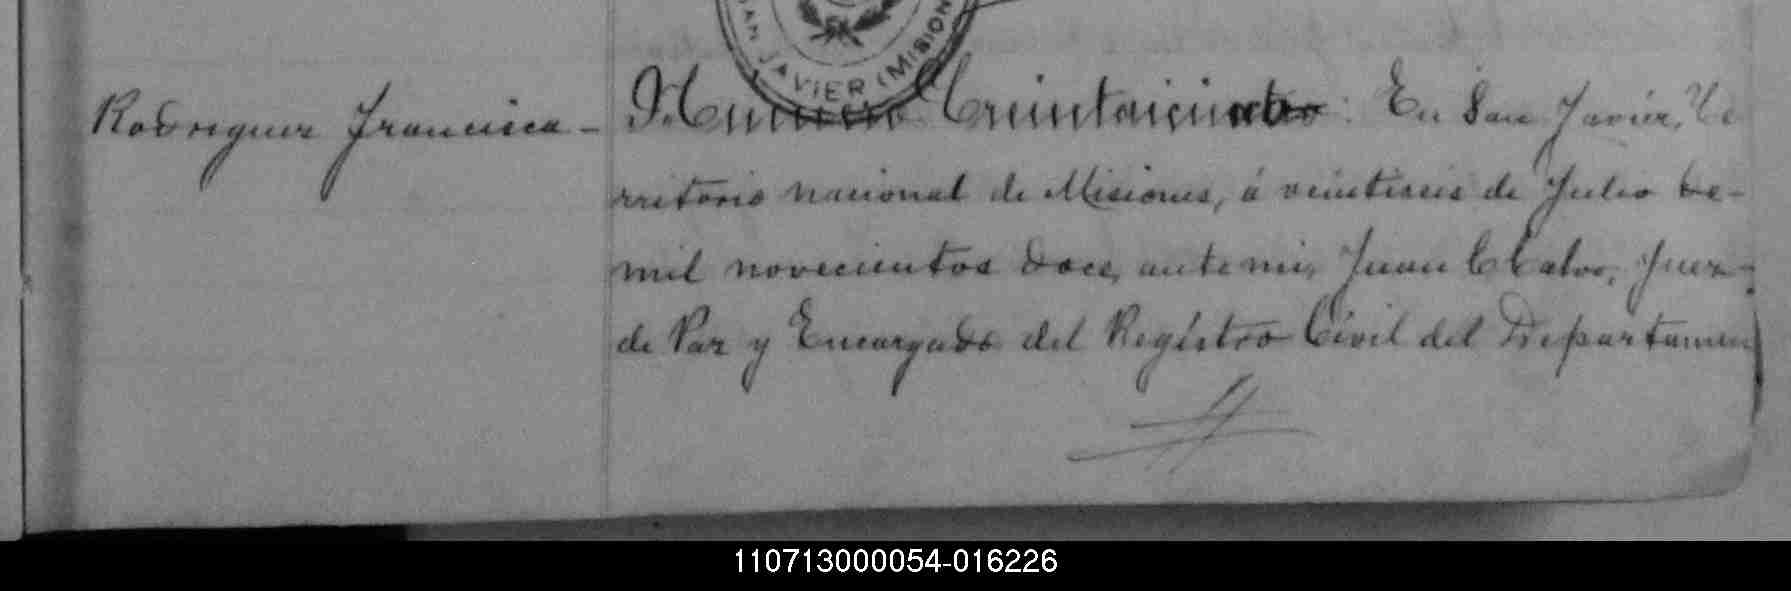 SAN JAVIER (MISION
Rodriguez Francisca - Numero Treintaicinco: En San Javier, Te
rritorio nacional de Misiones, á veintiseis de Julio de-
mil novecientos doce, ante mi, Juan C Calvo, Juez-
de Paz y Encargado del Registro Civil del Departamen
110713000054-016226